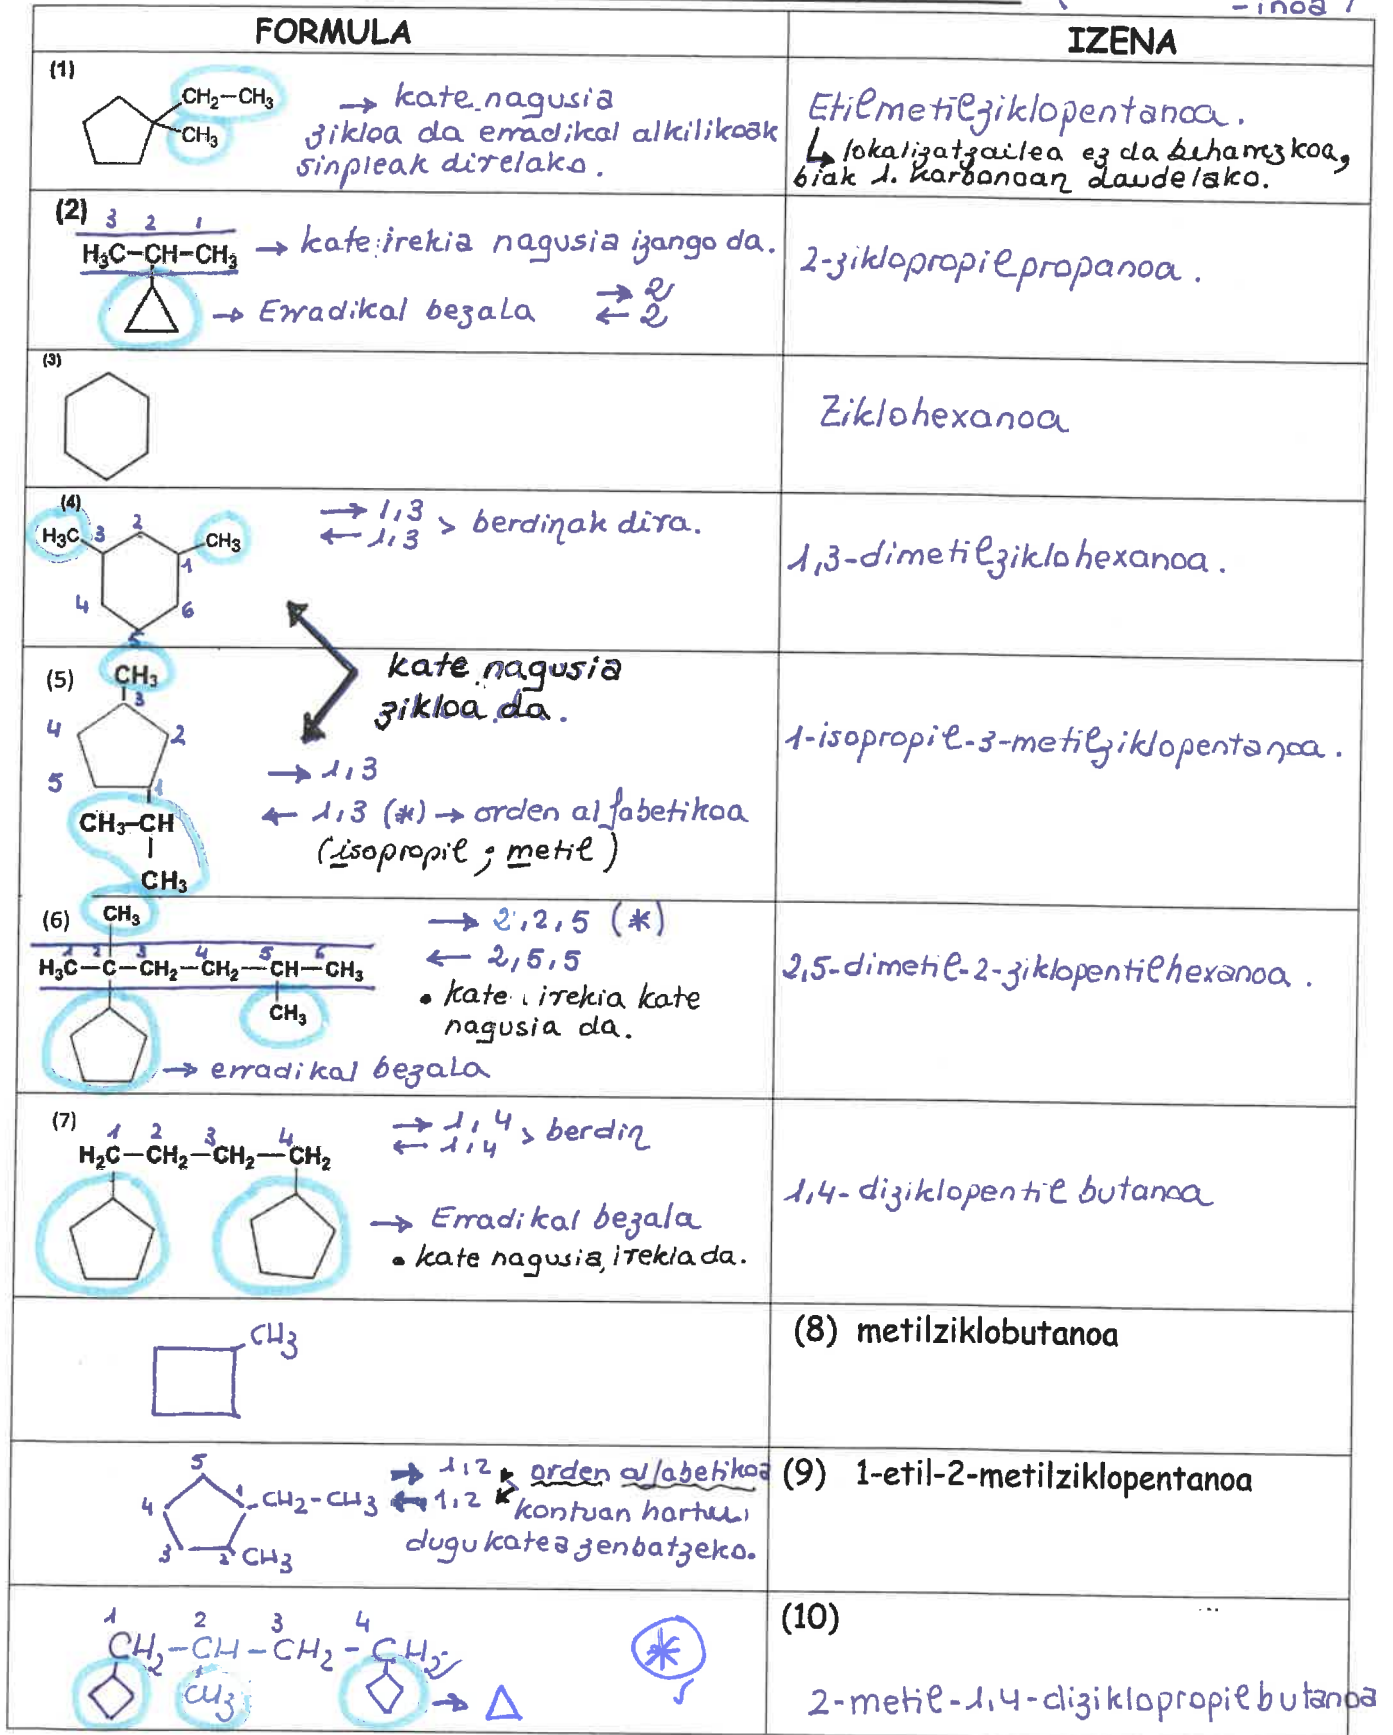 -inoa)
FORMULA
IZENA
(1)
CH₂-CH₃
CH₃
→ kate nagusia
zikloa da erradikal alkilikoak
sinpleak direlako.
Etilmetilziklopentanoa.
↳ lokalizatzailea ez da beharrezkoa,
biak 1. karbonoan daudelako.
(2)
3 2 1
H₃C-CH-CH₃
→ kate irekia nagusia izango da.
→ Erradikal bezala
→ 2
← 2
2-ziklopropilpropanoa.
(3)
Ziklohexanoa
(4)
H₃C 3 2 CH₃
1
4 6
5
→ 1,3
← 1,3 > berdinak dira.
1,3-dimetilziklohexanoa.
kate nagusia
zikloa da.
(5)
CH₃
3
4 2
5 1
CH₃-CH
CH₃
→ 1,3
← 1,3 (*) → orden alfabetikoa
(isopropil ; metil)
1-isopropil-3-metilziklopentanoa.
(6)
CH₃
1 2 3 4 5 6
H₃C-C-CH₂-CH₂-CH-CH₃
CH₃
→ 2,2,5 (*)
← 2,5,5
• kate irekia kate
nagusia da.
→ erradikal bezala
2,5-dimetil-2-ziklopentilhexanoa.
(7)
1 2 3 4
H₂C-CH₂-CH₂-CH₂
→ 1,4
← 1,4 > berdin
→ Erradikal bezala
• kate nagusia, irekia da.
1,4-diziklopentilbutanoa
CH₃
(8) metilziklobutanoa
5
4 1 CH₂-CH₃
3 2 CH₃
→ 1,2
← 1,2
orden alfabetikoa
kontuan hartu
dugu katea zenbatzeko.
(9) 1-etil-2-metilziklopentanoa
1 2 3 4
CH₂-CH-CH₂-CH₂
CH₃
→ △
*
(10)
2-metil-1,4-diziklopropilbutanoa